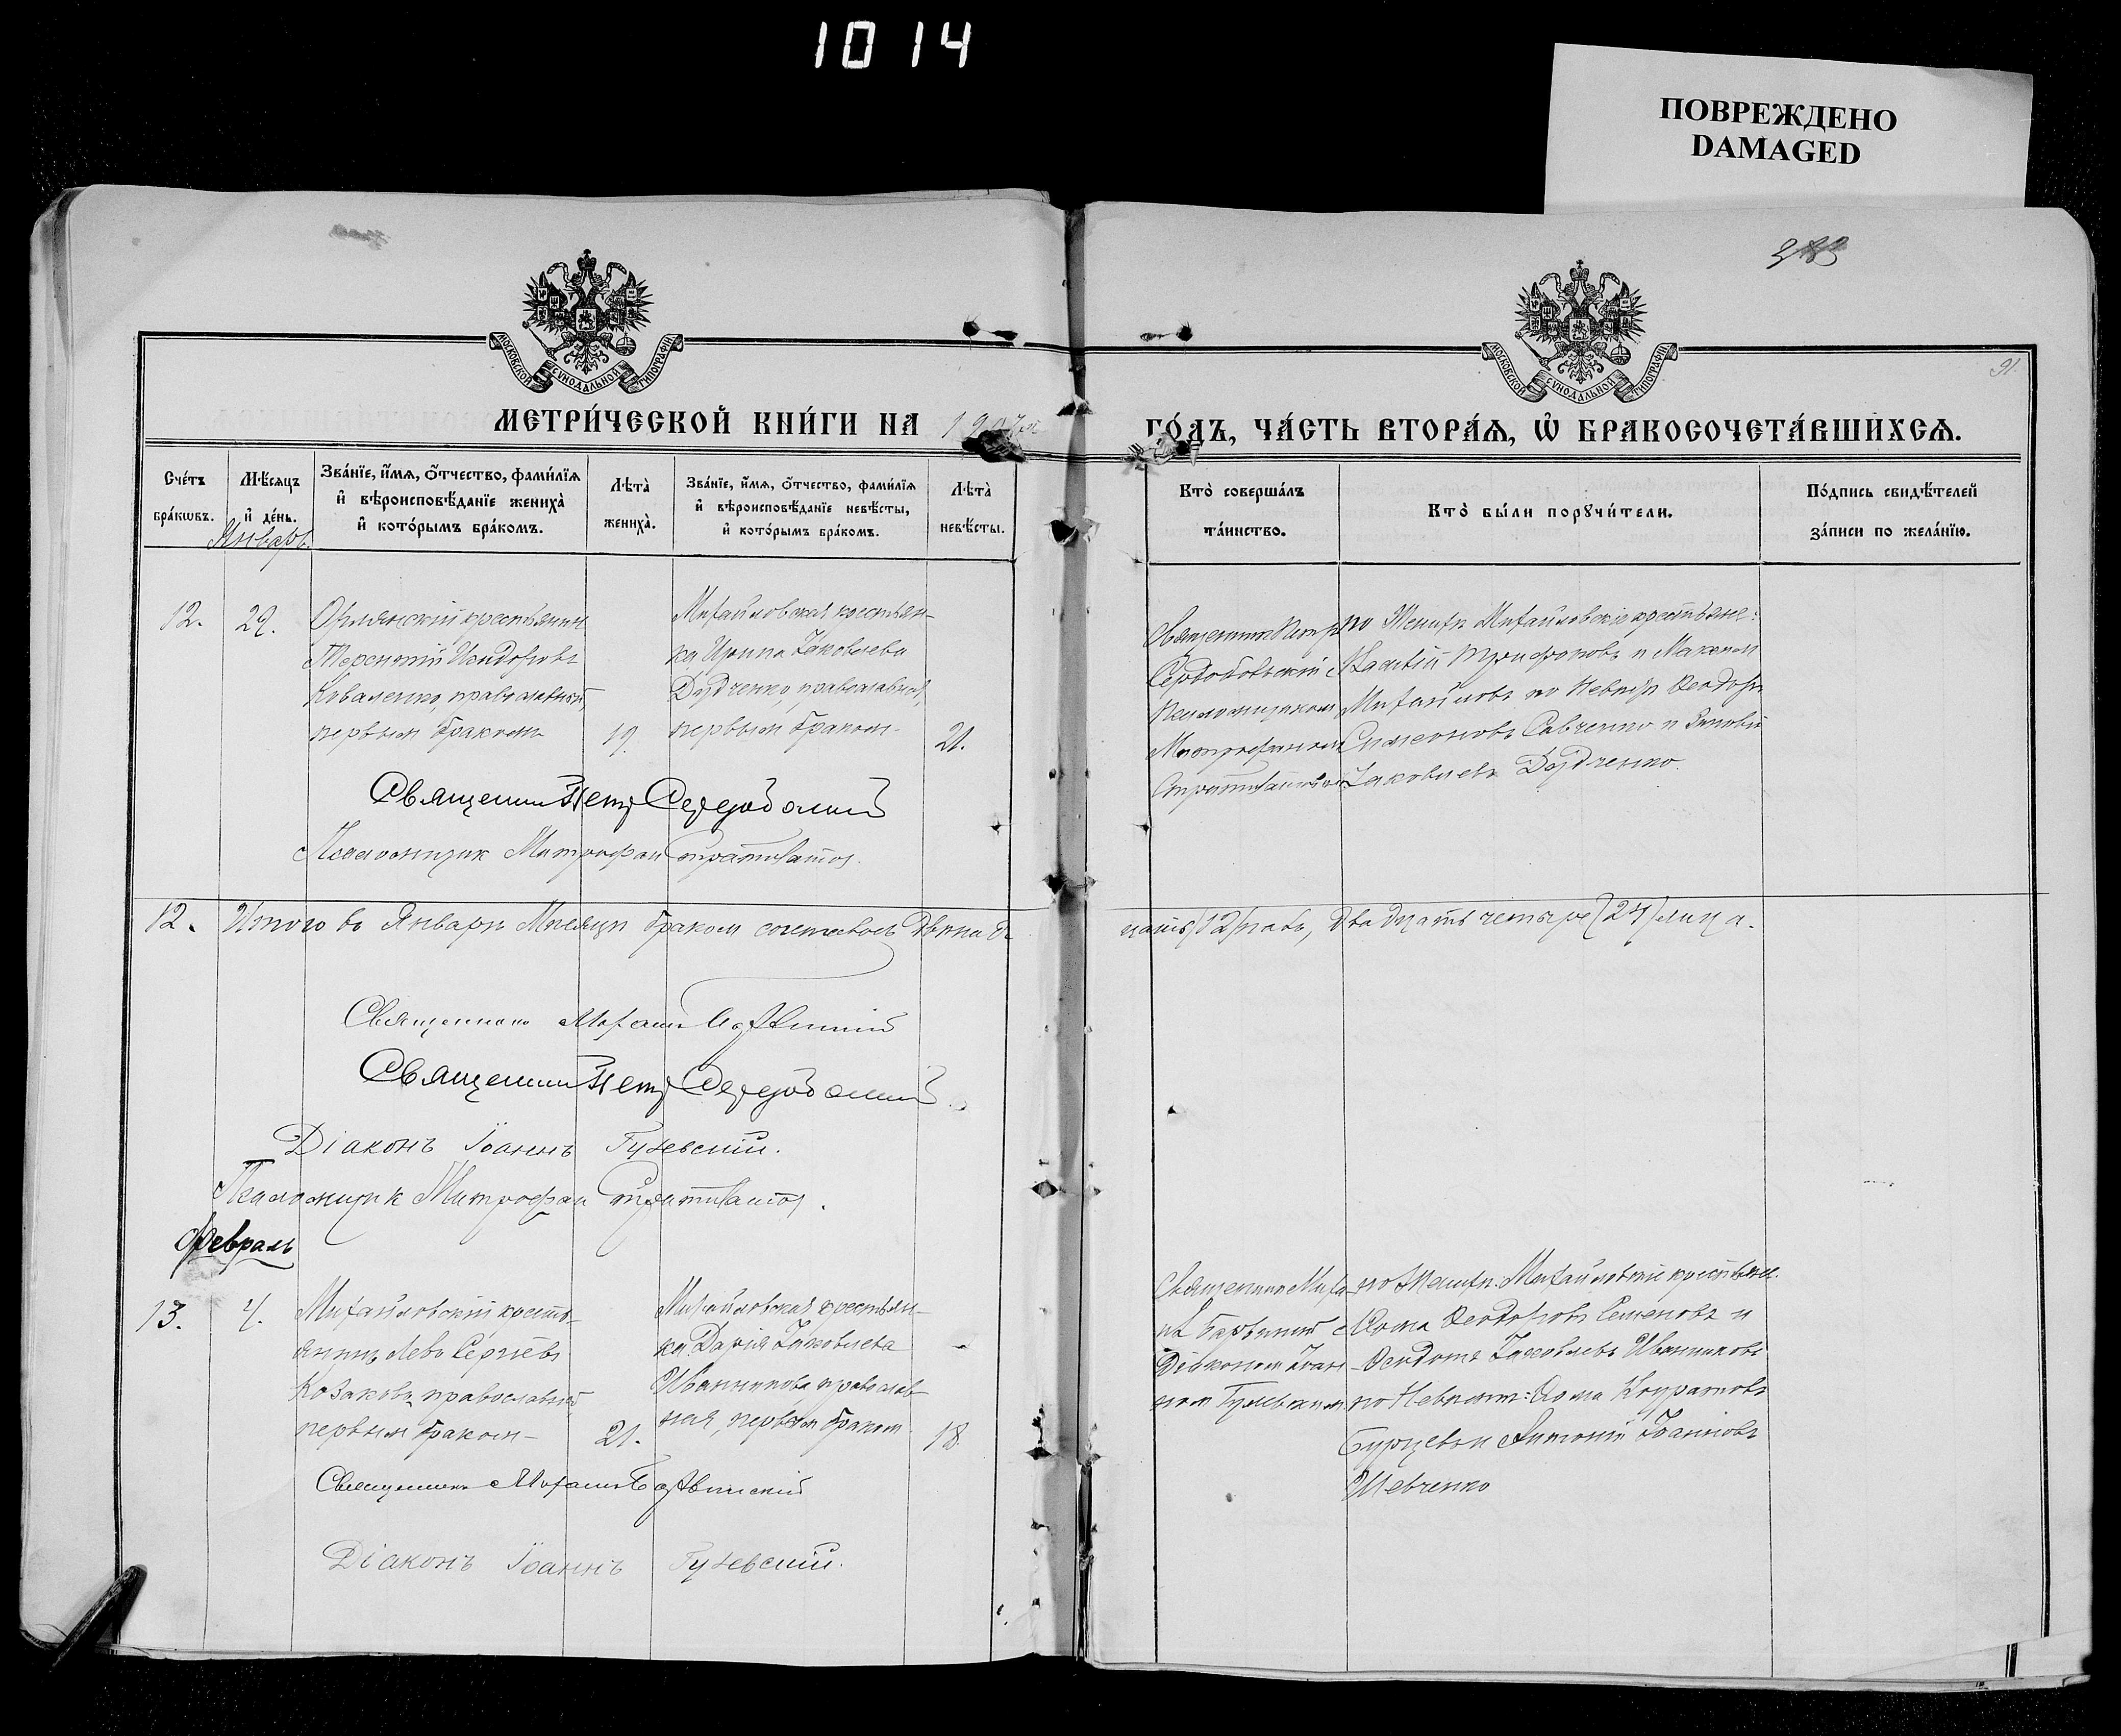 1014
ПОВРЕЖДЕНО
DAMAGED
МОСКОВСКОЙ СѴНОДАЛЬНОЙ ТИПОГРАФІИ
МОСКОВСКОЙ СѴНОДАЛЬНОЙ ТИПОГРАФІИ
91
МЕТРИ́ЧЕСКОЙ КНИ́ГИ НА 1907
ГО́ДЪ, ЧА́СТЬ ВТОРА́Ѧ, Ѡ҆ БРАКОСОЧЕТА́ВШИХСѦ.
Сче́тъ бра́кѡвъ.
Мѣ́сѧцъ и҆ де́нь.
Январь.
Зва́нїе, и҆́мѧ, ѻ҆́тчество, фами́лїѧ
и҆ вѣроисповѣ́данїе жениха̀
и҆ кото́рымъ бра́комъ.
Лѣта̀ жениха̀.
Зва́нїе, и҆́мѧ, ѻ҆́тчество, фами́лїѧ
и҆ вѣроисповѣ́данїе невѣ́сты,
и҆ кото́рымъ бра́комъ.
Лѣта̀ невѣ́сты.
Кто̀ соверша́лъ та́инство.
Кто̀ бы́ли порꙋчи́тели.
По́дпись свидѣ́телей
за́писи по жела́нїю.
12.
29.
Орлянскій крестьянинъ
Терентій Исидоровъ
Коваленко, православный,
первымъ бракомъ
19.
Михайловская крестьян-
ка Ирина Іаковлева
Дудченко, православная,
первымъ бракомъ
21.
Священникъ Петръ
Псаломщикомъ
Митрофаномъ
по Женихѣ Михайловскіе крестьяне:
Трифоновъ и Максимъ
Михайловъ по Невѣстѣ Ѳеодоръ
Симеоновъ Савченко и Зиновій
Іаковлевъ Дудченко.
Священникъ Петръ
Псаломщикъ Митрофан
12. Итого въ Январѣ Мѣсяцѣ бракомъ сочеталось двѣнад-
цать (12) паръ, двадцать четыре (24) лица.
Священникъ Михаилъ
Священникъ Петръ
Діаконъ Іоаннъ Гулевскій.
Псаломщикъ Митрофан
Февраль
13.
4.
Михайловскій кресть-
янинъ Левъ Сергіевъ
Козаковъ, православный,
первымъ бракомъ
21.
Михайловская крестьян-
ка Дарія Іаковлева
Иванникова, православ-
ная, первымъ бракомъ
18.
Священникъ Миха-
илъ съ
Діакономъ Іоан-
номъ Гулевскимъ
по Женихѣ: Михайловскіе крестьяне
Ѳома Ѳеодоровъ Семеновъ и
Ѳеодотъ Іаковлевъ Иванниковъ
по Невѣстѣ: Ѳома Кодратовъ
Бурцевъ и Антоній Іоанновъ
Шевченко
Священникъ Михаилъ
Діаконъ Іоаннъ Гулевскій.